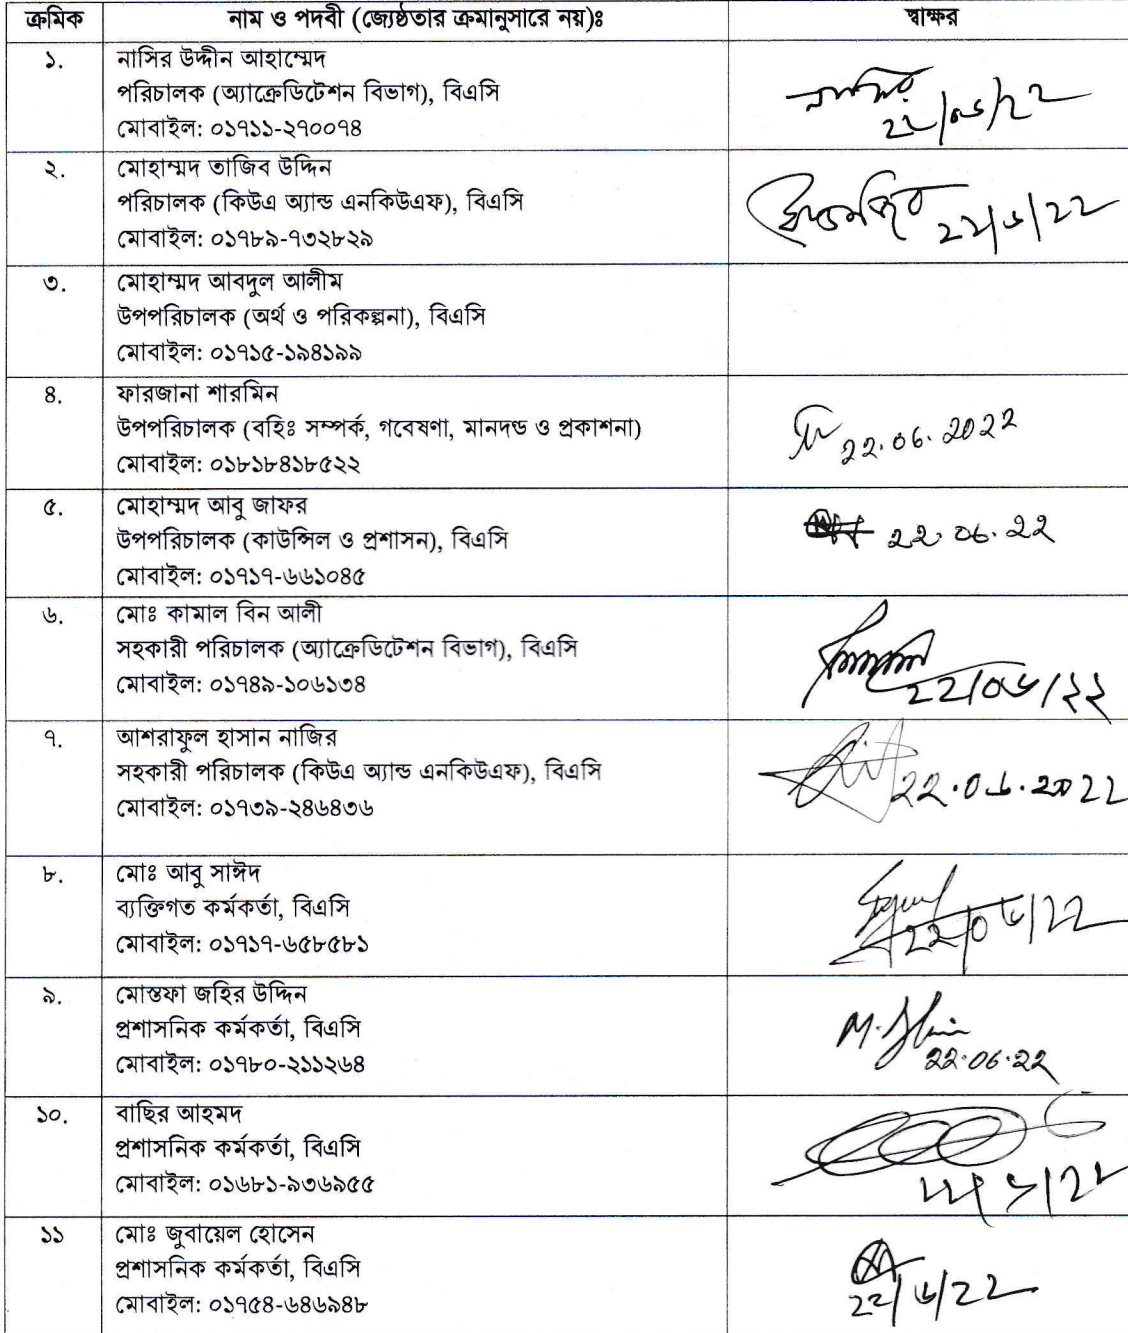 ক্রমিক নাম ও পদবী (জ্যেষ্ঠতার ক্রমানুসারে নয়)ঃ স্বাক্ষর
১. নাসির উদ্দীন আহাম্মেদ
পরিচালক (অ্যাক্রেডিটেশন বিভাগ), বিএসি
নাসির
মোবাইল: ০১৭১১-২৭০০৭৪
২২/০৬/২২
২. মোহাম্মদ তাজিব উদ্দিন
পরিচালক (কিউএ অ্যান্ড এনকিউএফ), বিএসি
মোবাইল: ০১৭৮৯-৭৩২৮২৯
২২/৬/২২
৩. মোহাম্মদ আবদুল আলীম
উপপরিচালক (অর্থ ও পরিকল্পনা), বিএসি
মোবাইল: ০১৭১৫-১৯৪১৯৯
৪. ফারজানা শারমিন
উপপরিচালক (বহিঃ সম্পর্ক, গবেষণা, মানদন্ড ও প্রকাশনা)
22.06.2022
মোবাইল: ০১৮১৮৪১৮৫২২
৫. মোহাম্মদ আবু জাফর
উপপরিচালক (কাউন্সিল ও প্রশাসন), বিএসি
22.06.22
মোবাইল: ০১৭১৭-৬৬১০৪৫
৬. মোঃ কামাল বিন আলী
সহকারী পরিচালক (অ্যাক্রেডিটেশন বিভাগ), বিএসি
মোবাইল: ০১৭৪৯-১০৬১৩৪
২২/০৬/২২
৭. আশরাফুল হাসান নাজির
সহকারী পরিচালক (কিউএ অ্যান্ড এনকিউএফ), বিএসি
22.06.2022
মোবাইল: ০১৭৩৯-২৪৬৪৩৬
৮. মোঃ আবু সাঈদ
ব্যক্তিগত কর্মকর্তা, বিএসি
মোবাইল: ০১৭১৭-৬৫৮৫৮১
২২/০৬/২২
৯. মোস্তফা জহির উদ্দিন
প্রশাসনিক কর্মকর্তা, বিএসি
মোবাইল: ০১৭৮০-২১১২৬৪
22.06.22
১০. বাছির আহমদ
প্রশাসনিক কর্মকর্তা, বিএসি
মোবাইল: ০১৬৮১-৯৩৬৯৫৫
১১ মোঃ জুবায়েল হোসেন
প্রশাসনিক কর্মকর্তা, বিএসি
মোবাইল: ০১৭৫৪-৬৪৬৯৪৮
২২/৬/২২